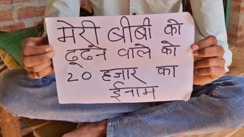 मेरी बीबी को
ढूढने वाले का
20 हजार का
ईनाम